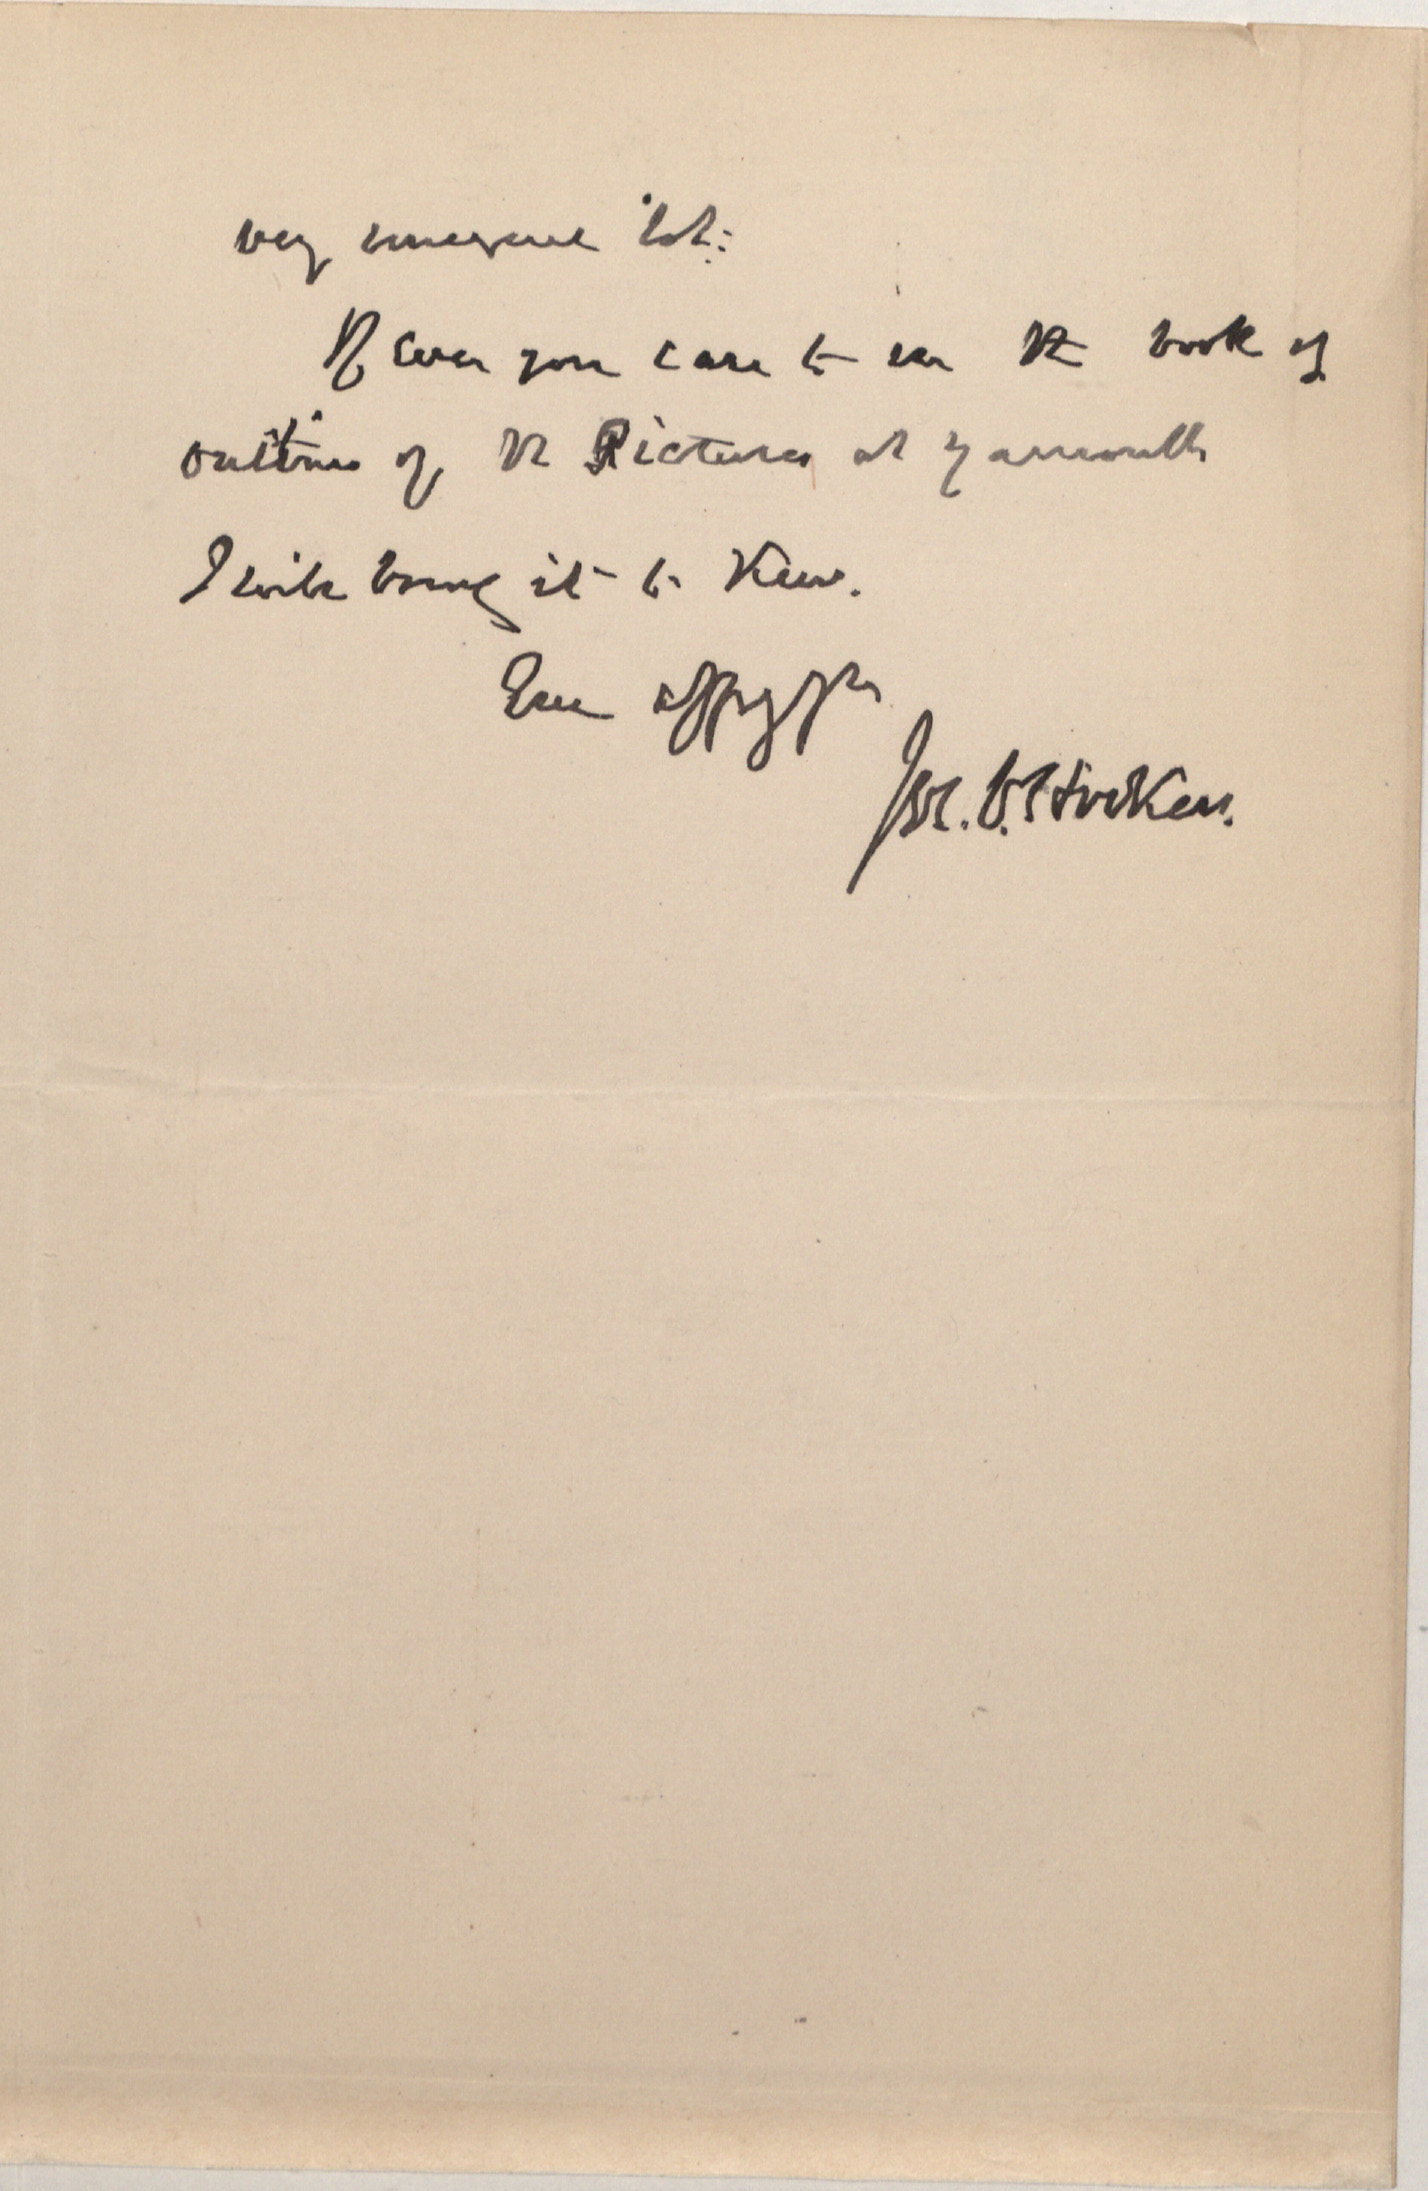 very
If ever you care to see the book of
outlines of the Pictures at Yarmouth
I will bring it to Kew.
Ever affy yrs
Jos. D. Hooker.